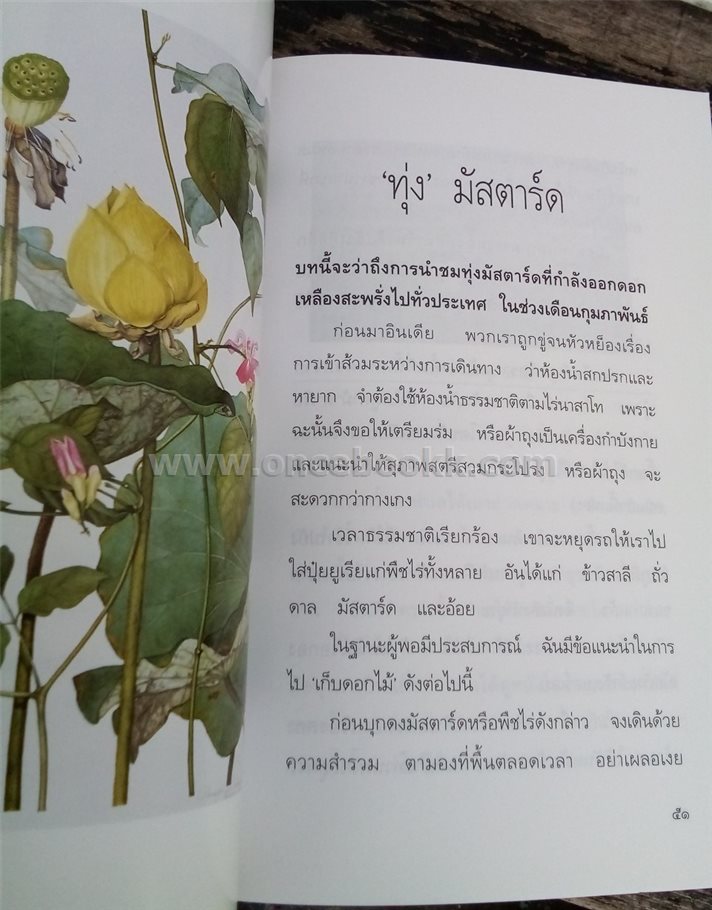 ‘ทุ่ง’ มัสตาร์ด
บทนี้จะว่าถึงการนำชมทุ่งมัสตาร์ดที่กำลังออกดอก
เหลืองสะพรั่งไปทั่วประเทศ ในช่วงเดือนกุมภาพันธ์
ก่อนมาอินเดีย พวกเราถูกขู่จนหัวหย็องเรื่อง
การเข้าส้วมระหว่างการเดินทาง ว่าห้องน้ำสกปรกและ
หายาก จำต้องใช้ห้องน้ำธรรมชาติตามไร่นาสาโท เพราะ
ฉะนั้นจึงขอให้เตรียมร่ม หรือผ้าถุงเป็นเครื่องกำบังกาย
www.oncebookk.com
และแนะนำให้สุภาพสตรีสวมกระโปรง หรือผ้าถุง จะ
สะดวกกว่ากางเกง
เวลาธรรมชาติเรียกร้อง เขาจะหยุดรถให้เราไป
ใส่ปุ๋ยยูเรียแก่พืชไร่ทั้งหลาย อันได้แก่ ข้าวสาลี ถั่ว
ดาล มัสตาร์ด และอ้อย
ในฐานะผู้พอมีประสบการณ์ ฉันมีข้อแนะนำในการ
ไป ‘เก็บดอกไม้’ ดังต่อไปนี้
ก่อนบุกดงมัสตาร์ดหรือพืชไร่ดังกล่าว จงเดินด้วย
ความสำรวม ตามองที่พื้นตลอดเวลา อย่าเผลอเงย
๕๑